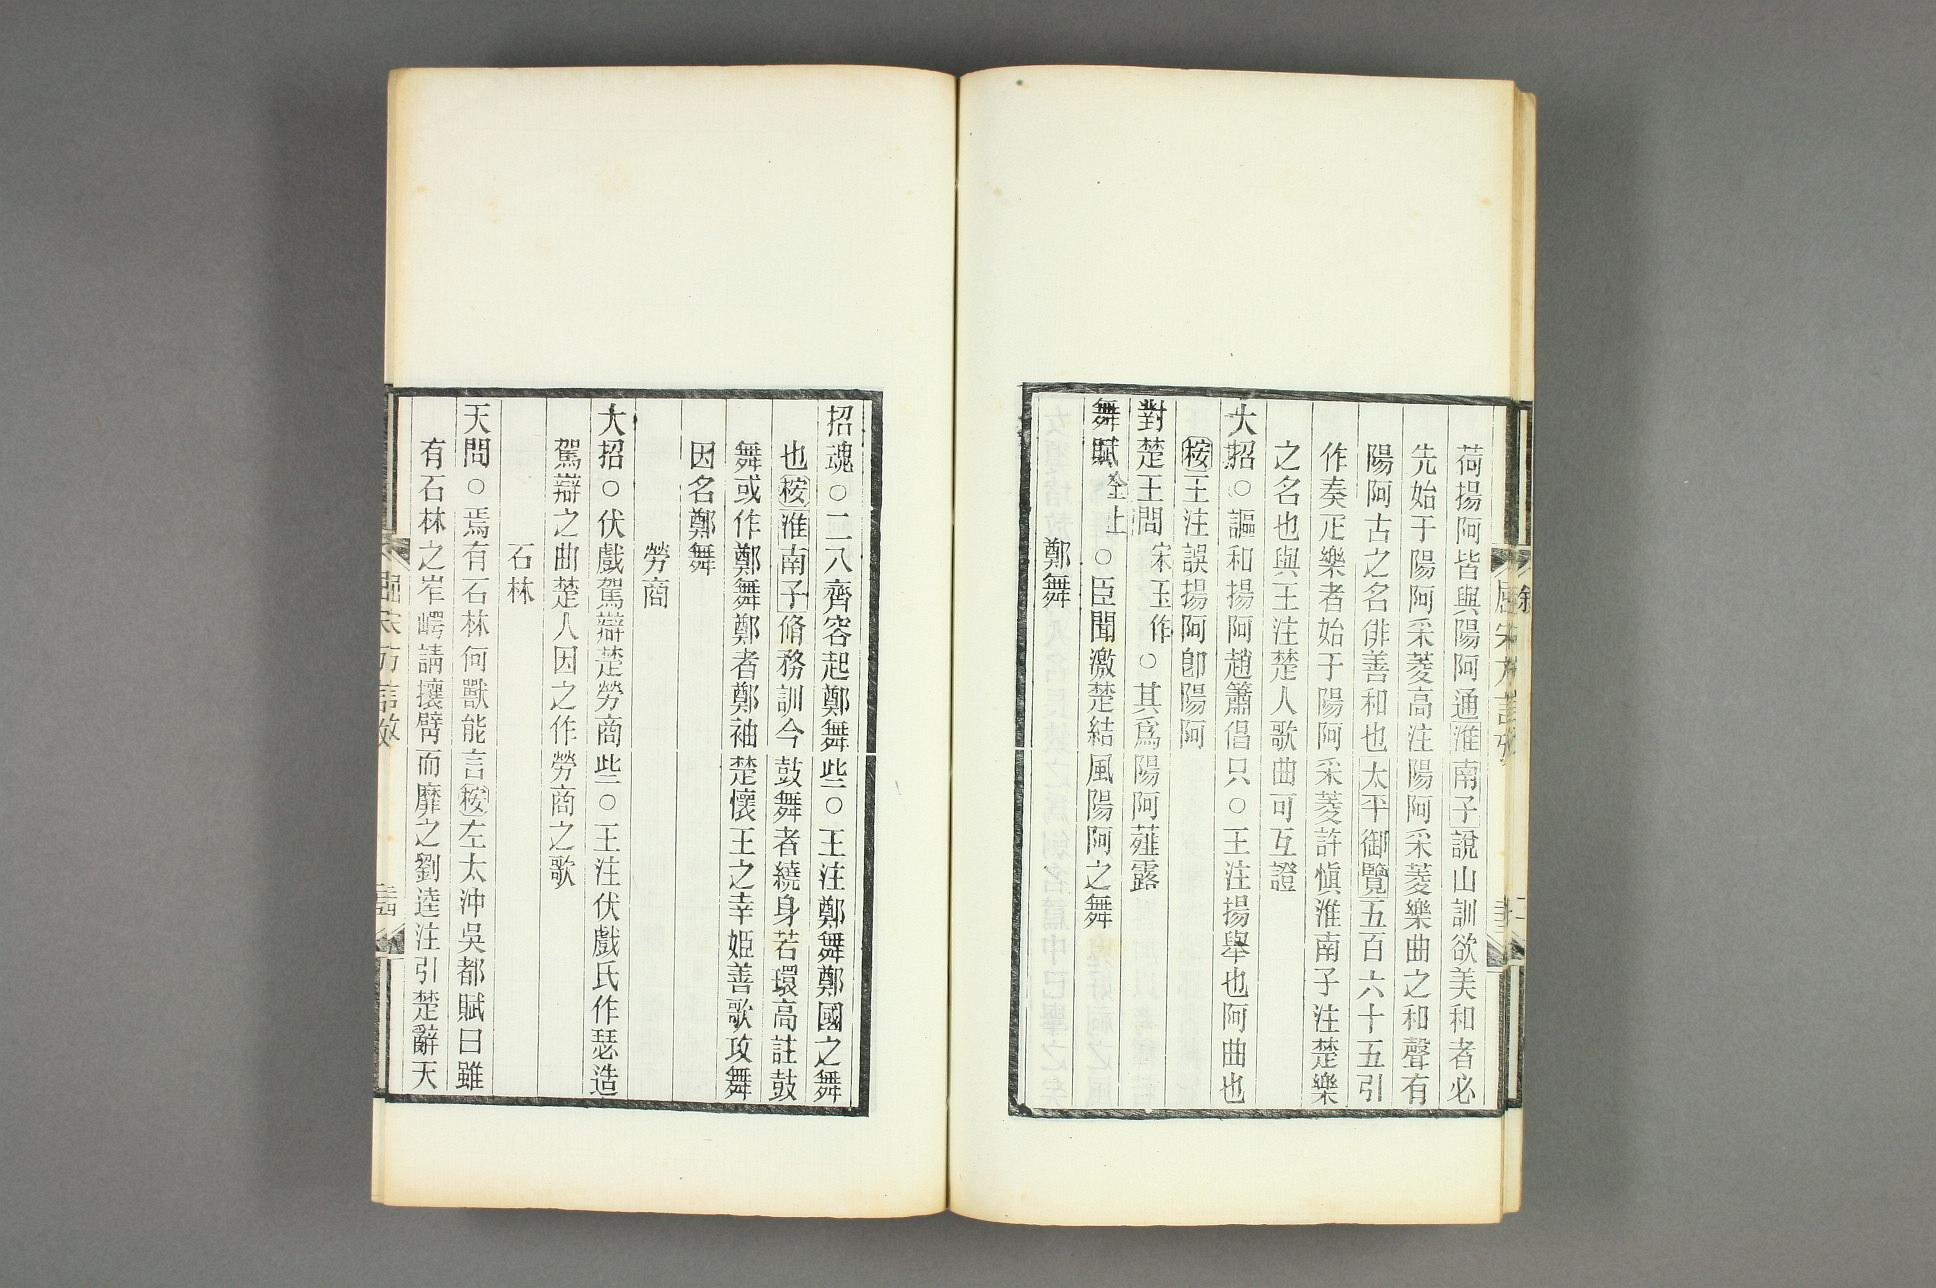 荷揚阿皆與陽阿通淮南子說山訓欲美和者必
先始于陽阿采菱高注陽阿采菱樂曲之和聲有
陽阿古之名俳善和也太平御覽五百六十五引
作奏疋樂者始于陽阿采菱許愼淮南子注楚樂
之名也與王注楚人歌曲可互證
大招○謳和揚阿趙簫倡只○王注揚舉也阿曲也
桉王注誤揚阿卽陽阿
對楚王問宋玉作○其爲陽阿薤露
舞賦仝上○臣聞激楚結風陽阿之舞
鄭舞
招魂○二八齊容起鄭舞些○王注鄭舞鄭國之舞
也桉淮南子脩務訓今鼓舞者繞身若環高註鼓
舞或作鄭舞鄭者鄭袖楚懷王之幸姬善歌攻舞
因名鄭舞
勞商
大招○伏戲駕辯楚勞商些○王注伏戲氏作瑟造
駕辯之曲楚人因之作勞商之歌
石林
天問○焉有石林何獸能言桉左太沖吳都賦曰雖
有石林之岝崿請攘臂而靡之劉逵注引楚辭天
屈宋方言攷